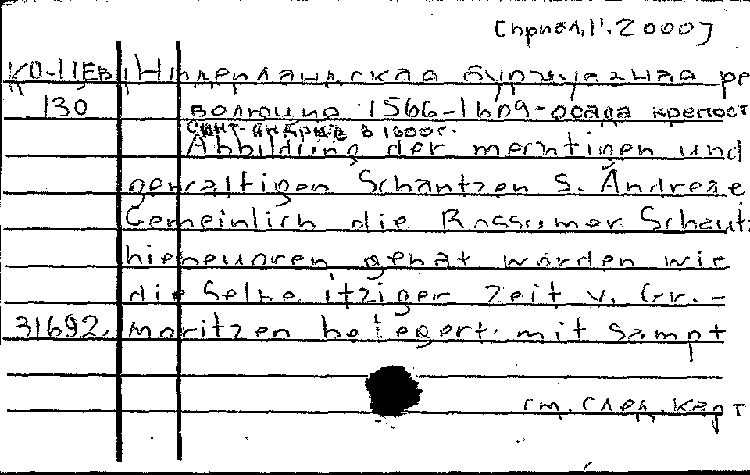 [прил.1. 2000]
КО-II Ев. Нидерландская буржуазная ре
130 волюция 1566-1609-осада крепост
Сант-Андрые в 1600г.
Abbildung der mechtigen und
gewaltigen Schantzen S. Andreae
Gemeinlich die Rossumer Schantz
hiebeuoren genat worden wie
die selbe itziger Zeit v. Gr.-
31692. Moritzen belegert. mit sampt
см. след. карт